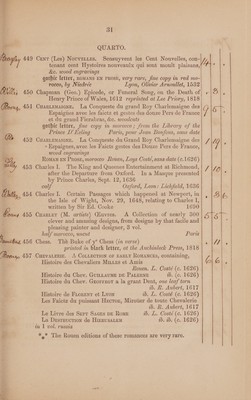 31
QUARTO.
449 CENT (Les) NOUVELLES. Senseuyuent les Cent Nouvelles, con-
tenant cent Hystoires nouveaulx qui sont moult plaisans,
&c. wood engravings
gothic letter, ROMANS DE PROSE, very rare, fine copy in red mo-
rocco, by Niedrée Lyon, Olivier Arnoullet, 1532
450 Chapman (Geo.) Epicede, or Funeral Song, on the Death of
Henry Prince of Wales, 1612 reprinted at Lee Priory, 1818
451 CHARLEMAIGNE. La Conqueste du grand Roy Charlemaigne des
Espaignes avec les faictz et gestes des douze Pers de France
et du grand Fierabras, &c. woodcuts
gothic letter, fine copy in morocco, from the Library of the
Prince D'Essling Paris, pour Jean Bonfons, sans date
452 CHARLEMAIGNE. La Conqueste du Grand Roy Charlemaigne des
Espaignes, avec les Faicts gestes des Douze Pers de France,
wood engravings
ROMAN EN PROSE, morocco Rouen, Loys Costé, sans date (c. 1626)
453 Charles I. The King and Queenes Entertainement at Richmond
after the Departure from Oxford. In a Masque presented
by Prince Charles, Sept. 12, 1636
calf Oxford, Leon: Lichfield, 1636
454 Charles I. Certain Passages which happened at Newport, in
the Isle of Wight, Nov. 29, 1648, relating to Charles I,
written by Sir Ed. Cooke 1690
455 CHARLET (M. artiste) Œuvres. A Collection of nearly 500
clever and amusing designs, from designs by that facile and
pleasing painter and designer, 3 vol.
half morocco, uncut Paris
456 Chess. The Buke of yᵉ Chess (in verse)
printed in black letter, at the Auchinleck Press, 1818
457 CHEVALERIE. A COLLECTION OF EARLY ROMANCES, containing,
Histoire des Chevaliers MILLES et AMIS
Rouen. L. Costé (c. 1626)
Histoire du Chev. GUILLAUME DE PALERNE ib. (c. 1626)
Histoire du Chev. GEOFFREY a la grant Dent, one leaf torn
ib. R. Aubert, 1617
Histoire de FLORENT et LYON ib. L. Costé (c. 1626)
Les Faicts du puissant HECTOR, Miroüer de toute Cheualerie
ib. R. Aubert, 1617
Le Livre des SEPT SAGES DE ROME ib. L. Costé (c. 1626)
La DESTRUCTION DE HIERUSALEM ib. ib. (c. 1626)
in 1 vol. russia
*⁎* The Rouen editions of these romances are very rare.